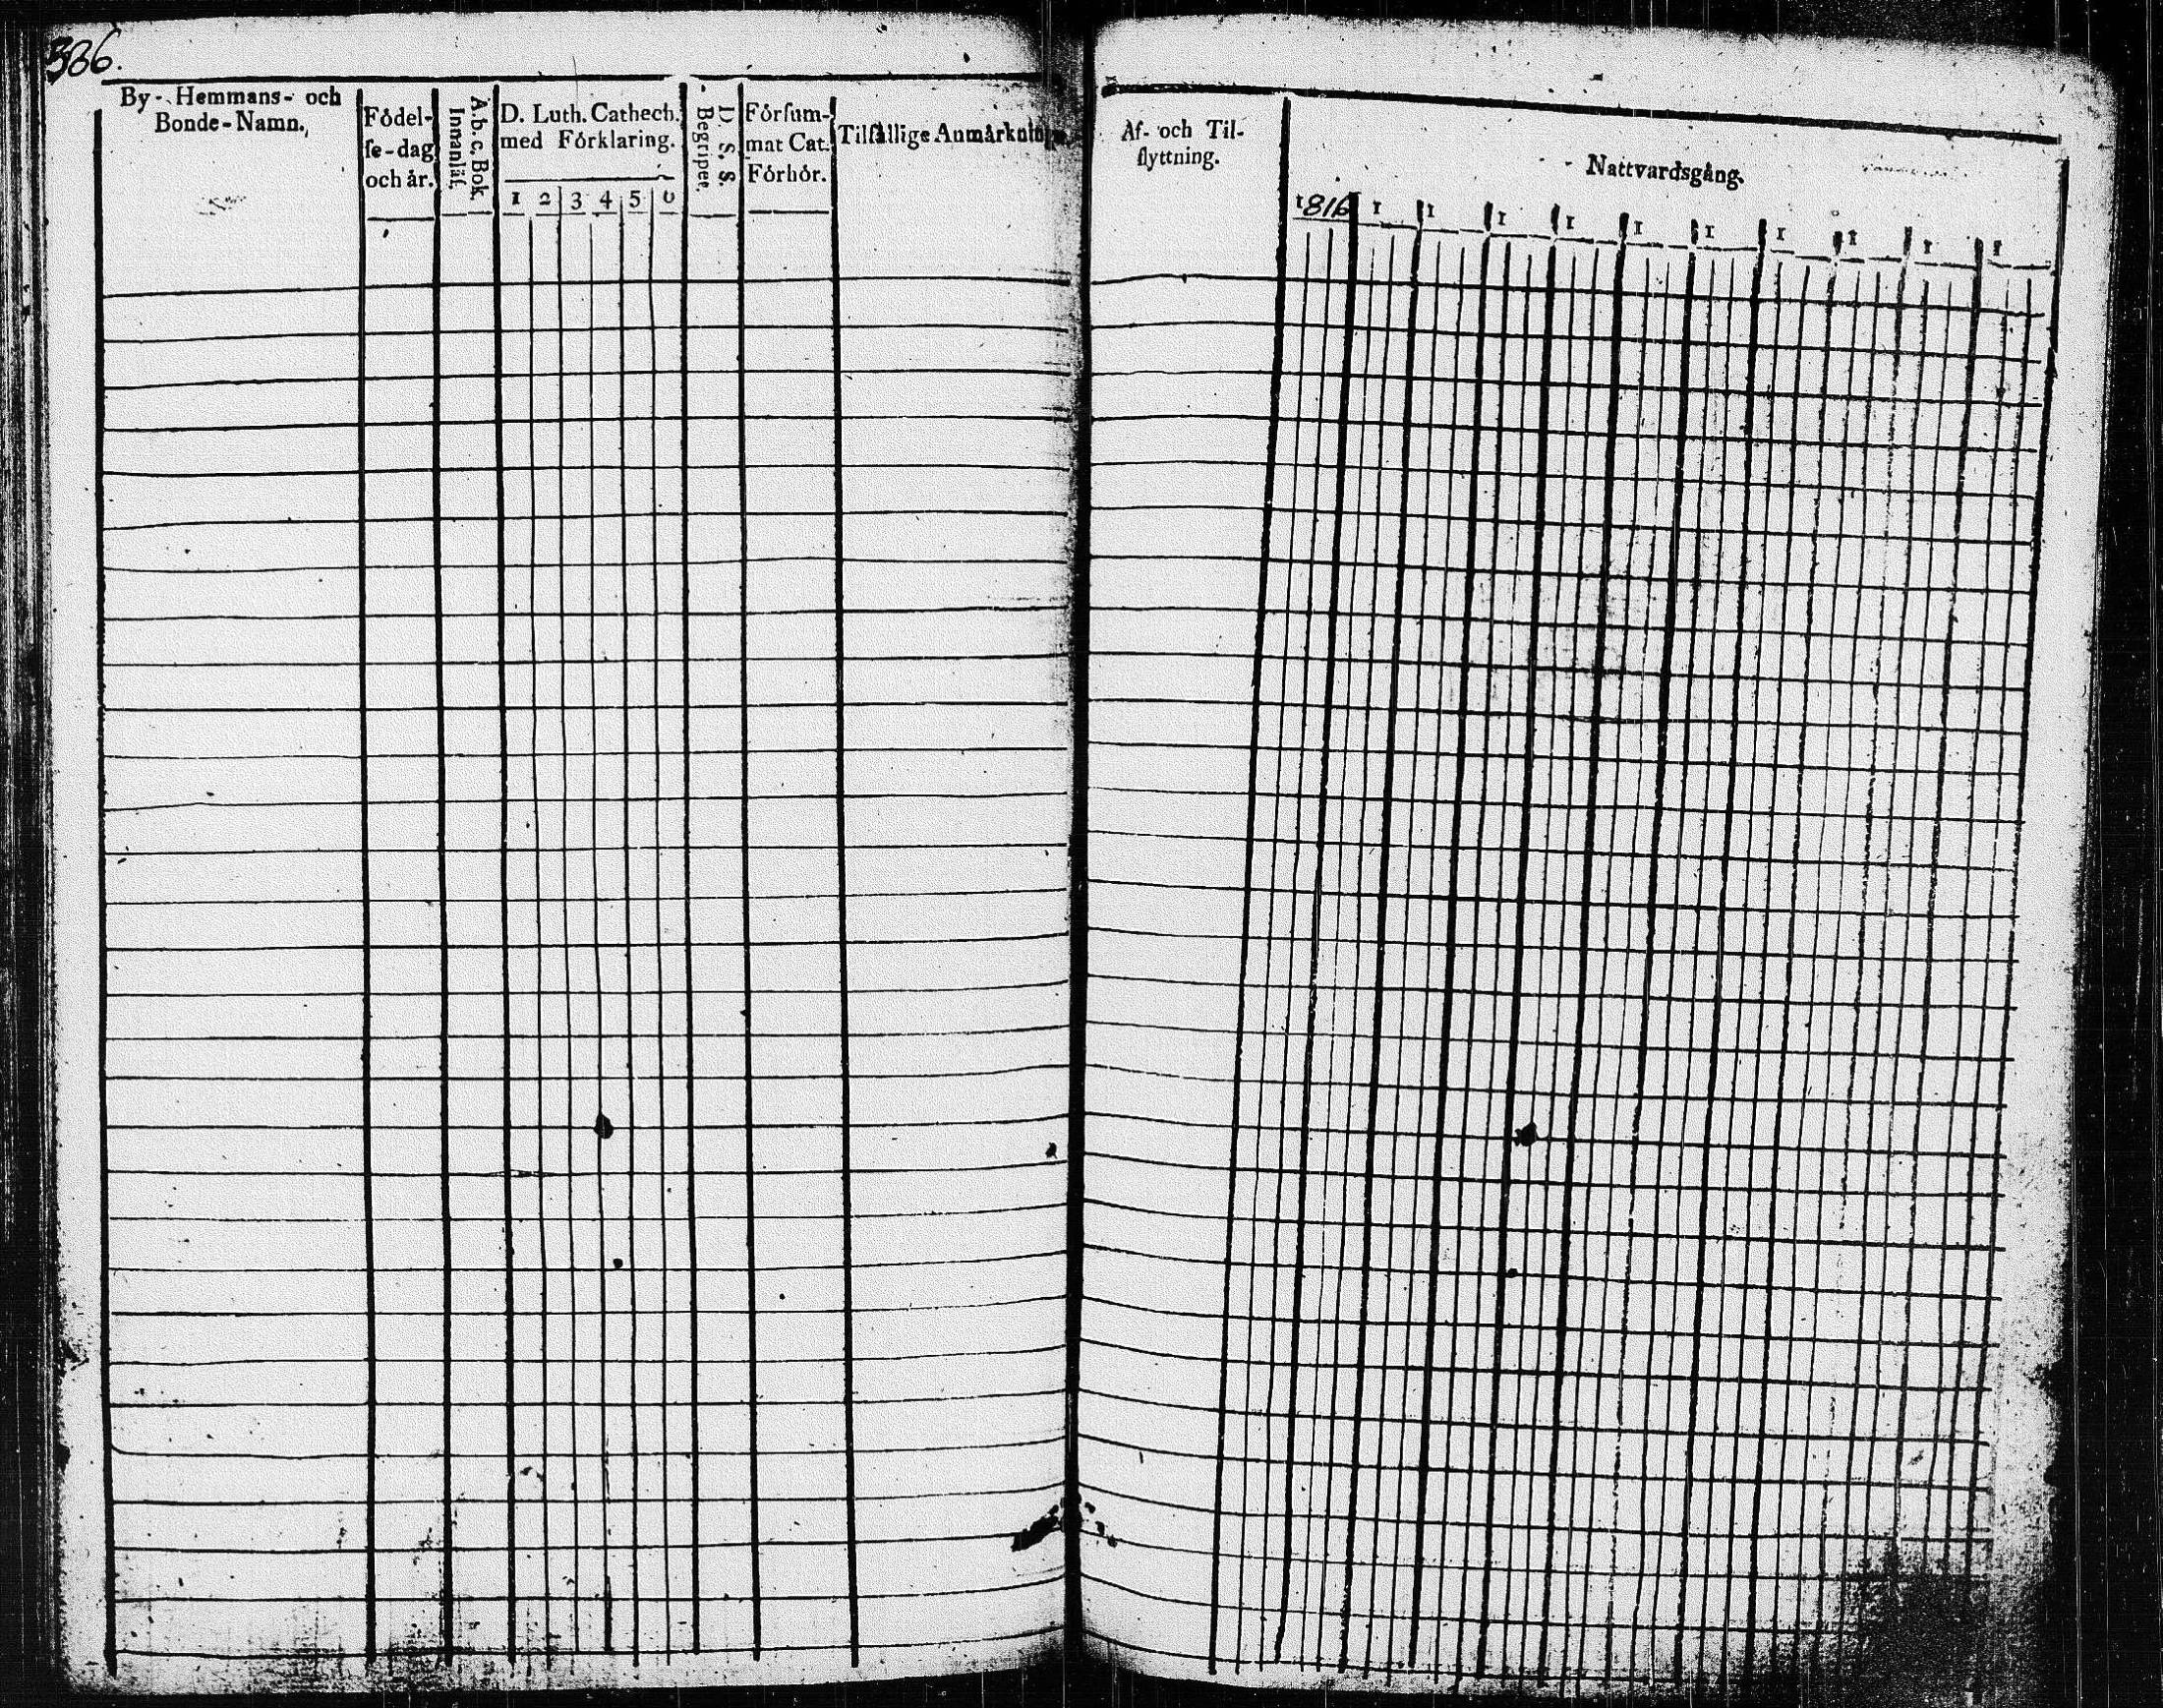 386.
By-Hemmans-och
Bonde-Namn.
Fódel-
ſe-dag
och år.
A.b.c. Bok.
Innanläſ.
D. Luth. Cathech.
med Fórklaring.
1 2 3 4 5 6
D. S. S.
Begriper.
Fórſum-
mat Cat.
Fórhór.
Tilfällige Anmärkningar.
Af- och Til-
flyttning.
Nattvardsgång.
1816 1 1 1 1 1 1 1 1 1 1